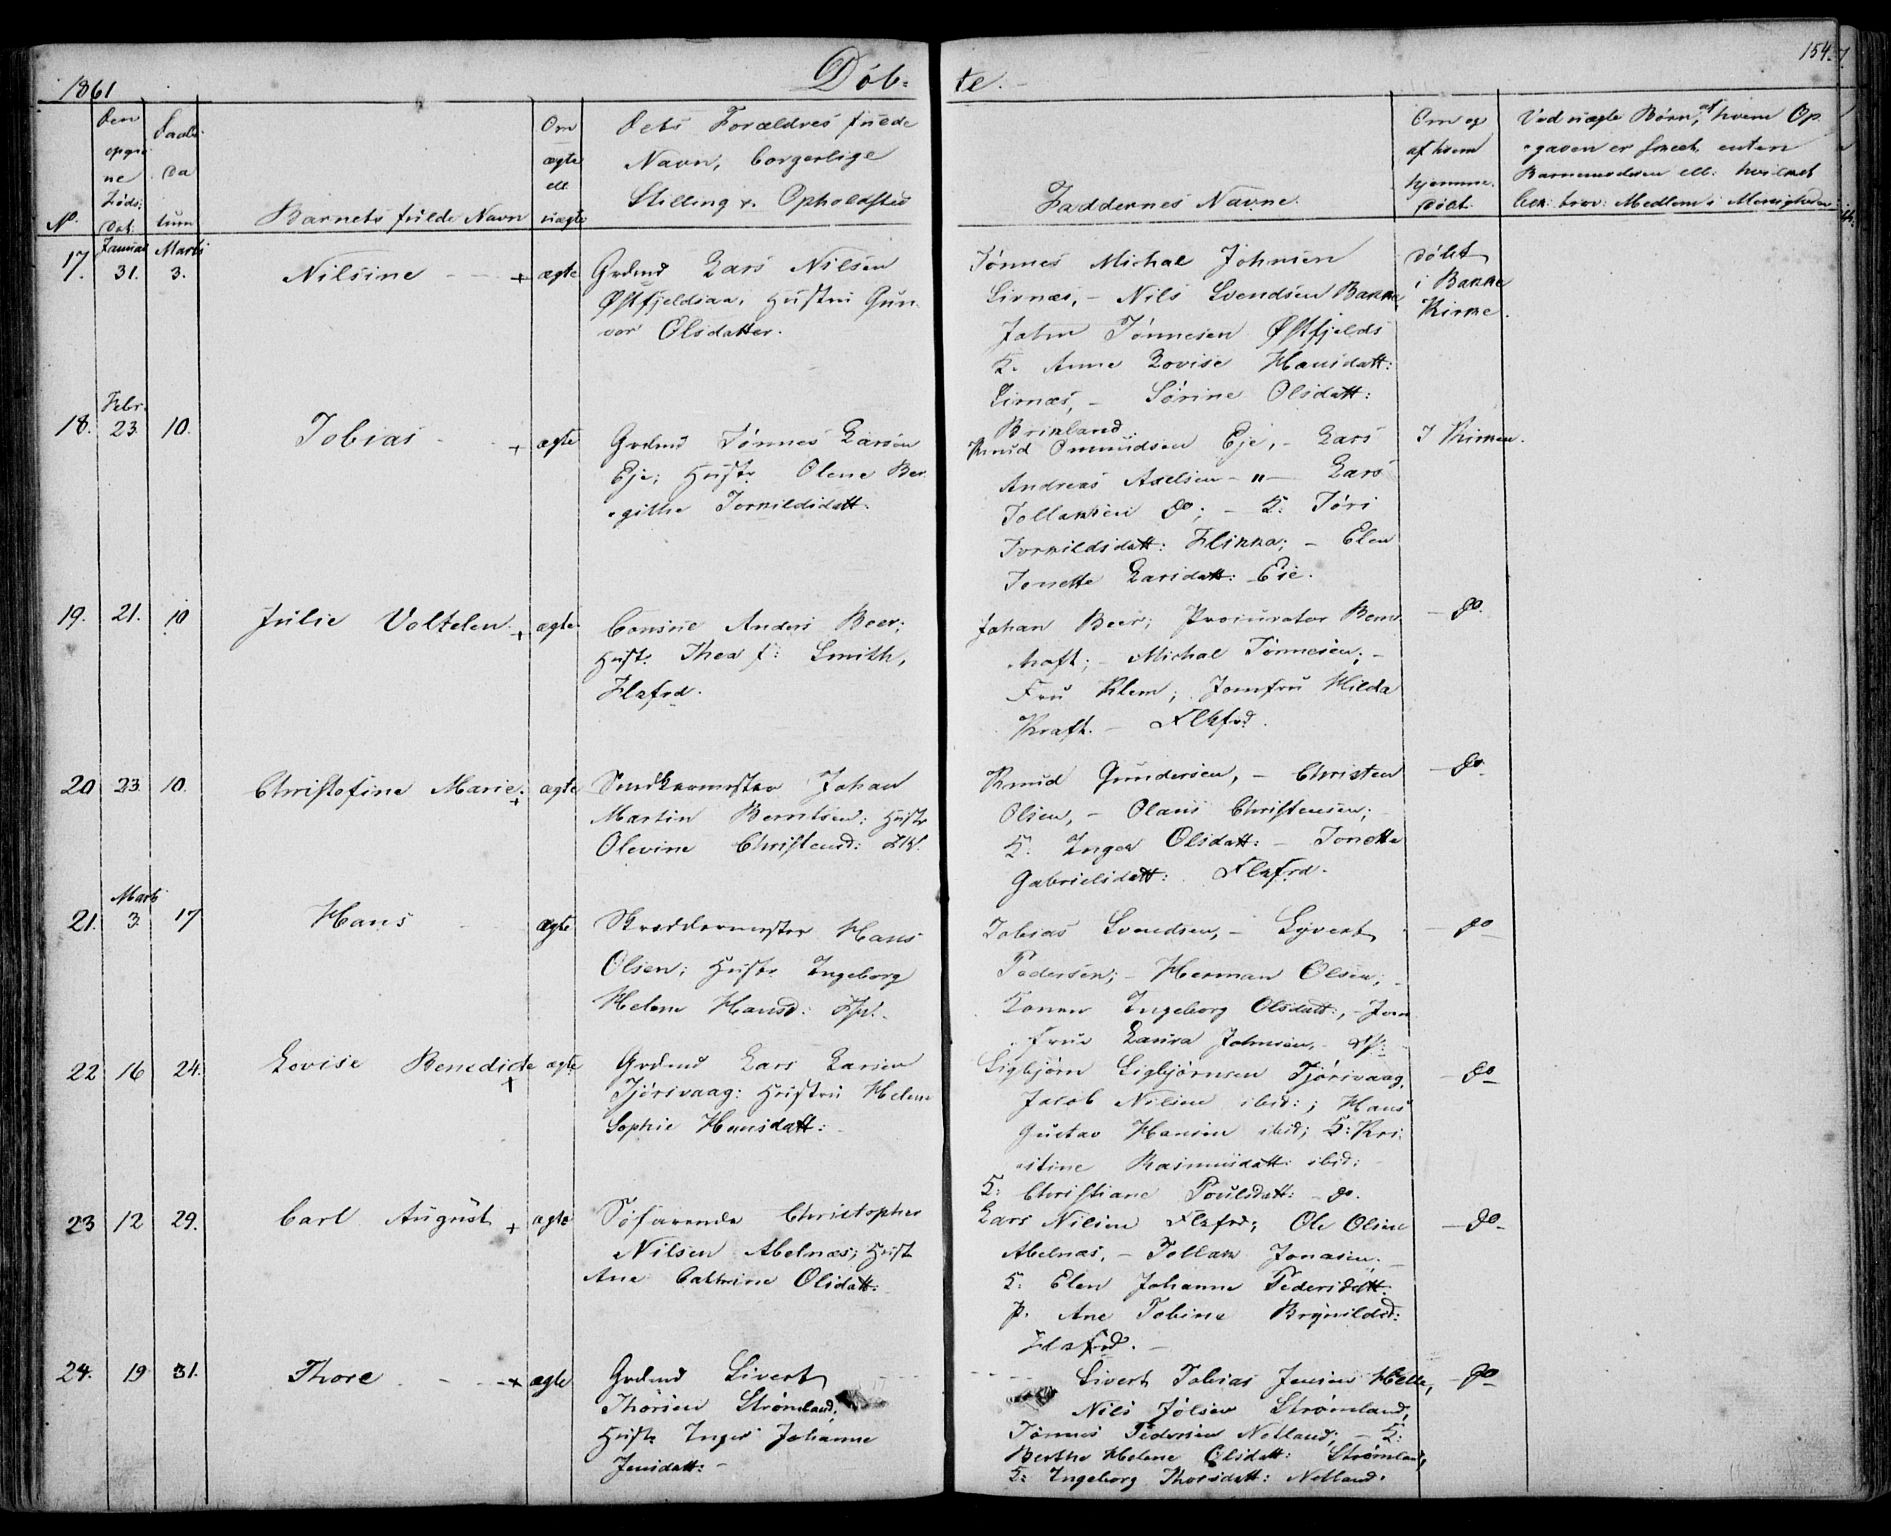 1861
Döb-
te.
154.
No.
Den
opgi-
ne
Føds:
Dat:
Daabs-
da
tum
Barnets fulde Navn
Om
ægte
ell
uægte
Dets Forældres fulde
Navn, borgerlige
Stilling & Opholdsted
Faddernes Navne.
Om og
af hvem
hjemme-
døbt.
Ved uægte Børn, af hvem Op-
gaven er skeet, enten
Barnemoderen ell: hvilket
bek: trov: Medlem i Menigheden
17.
Januar
31.
Marts
3.
Nilsine
+
ægte
Grdmd Lars Nilsen
Østfjeldsaa, Hustru Gun-
vor Olsdatter.
Tönnes Michal Johnsen
Sirnæs, - Nils Svendsen Bakke
John Tönnesen Østfjelds
K. Anne Lovise Hansdatt:
Sirnæs, - Sörine Olsdatt:
Briseland.
döbt
i Bakke
Kirke.
18.
Febr.
23.
10.
Tobias
+
ægte
Grdmd Tönnes Larsen
Eje; Hustr Olene Ber-
githe Torkildsdatt.
Knud Omundsen Eje, - Lars
Andreas Axelsen - " - Lars
Tollaksen do; - K: Töri
Torkildsdatt: Flikka; - Elen
Tonette Larsdatt: Eie.
I Kirken.
19.
21.
10
Julie Voltelen
+
ægte
Consul Anders Beer;
Hust. Thea f: Smith,
Flkfrd.
Johan Beer; Procurator Bern-
hoft; - Michal Tönnesen; -
Fru Klem; Jomfru Hilda
Kraft. - Flkfrd.
- do.
20
23
10.
Christofine Marie.
+
ægte
Snedkermester Johan
Martin Berntsen; Hustr
Olevine Christensd:
Knud Gundersen, - Christen
Olsen, - Olaus Christensen;
K. Inger Olsdatt: - Tonette
Gabrielsdatt: Flkfrd.
- do.
21.
Marts
3.
17
Hans
ægte
Skreddermester Hans
Olsen; Hustr. Ingeborg
Helene Hansd:
Tobias Svendsen, - Syvert
Pedersen; - Herman Olsen;
Konen Ingeborg Olsdatt:, - Jom-
frue Laura Johnsen, -
- do
22
16
24.
Lovise Benedicte
+
ægte
Grdmd Lars Larsen
Tjörsvaag: Hustru Helene
Sophie Hansdatt:
Sigbjörn Sigbjörnsen Tjörsvaag,
Jacob Nilsen ibid:; Hans
Gustav Hansen ibid; K: Kri-
stine Rasmusdatt: ibid:
K: Christiane Poulsdatt: - do.
- do
23
12
29.
Carl August
+
ægte
Söfarende Christopher
Nilsen Abelnæs; Hust
Ane Cathrine Olsdatt:
Lars Nilsen Flkfrd; Ole Olsen
Abelnæs, - Tollak Jonasen;
K: Elen Johanne Pedersdatt.
P. Ane Tobine Brynildsd:
Flkfrd.
- do.
24.
19
31.
Thore
+
ægte
Grdmd Sivert
Thorsen Strömland;
Hustr Inger Johanne
Jensdatt: -
Sivert Tobias Jensen Helle,
Nils Jölsen Strömland,
Tönnes Pedersen Notland; - K:
Berthe Helene Olsdatt: Strömland,
K: Ingeborg Thorsdatt: Notland.
- do